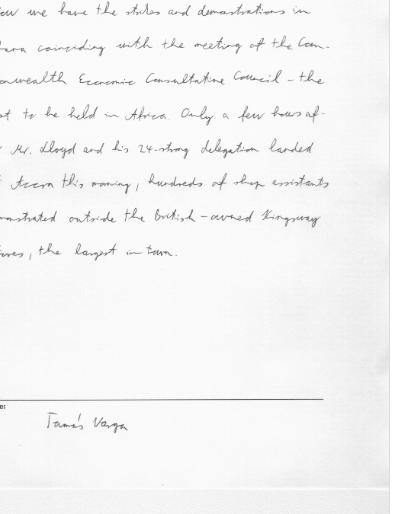 we have the strikes and demonstrations in
coinciding with the meeting of the Com-
Economic Consultative Council - the
to be held in Africa. Only a few hours af-
Mr. Lloyd and his 24-strong delegation landed
Accra this morning, hundreds of shop assistants
outside the British-owned Kingsway
, the largest in town.
Tamás Varga